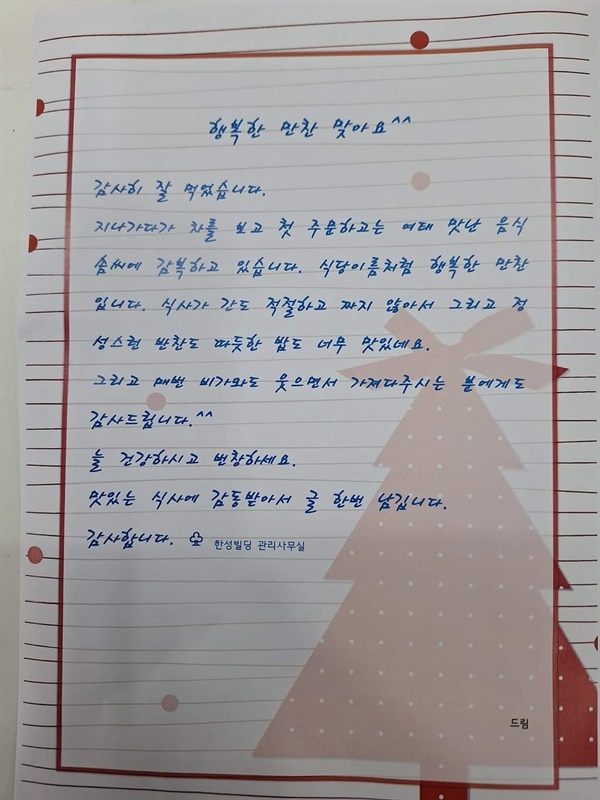 행복한 만찬 맞아요^^
감사히 잘 먹었습니다.
지나가다가 차를 보고 첫 주문하고는 여태 맛난 음식
솜씨에 감복하고 있습니다. 식당이름처럼 행복한 만찬
입니다. 식사가 간도 적절하고 짜지 않아서 그리고 정
성스런 반찬도 따듯한 밥도 너무 맛있네요.
그리고 매번 비가와도 웃으면서 가져다주시는 분에게도
감사드립니다.^^
늘 건강하시고 번창하세요.
맛있는 식사에 감동받아서 글 한번 남깁니다.
감사합니다. ♧ 한성빌딩 관리사무실
드림